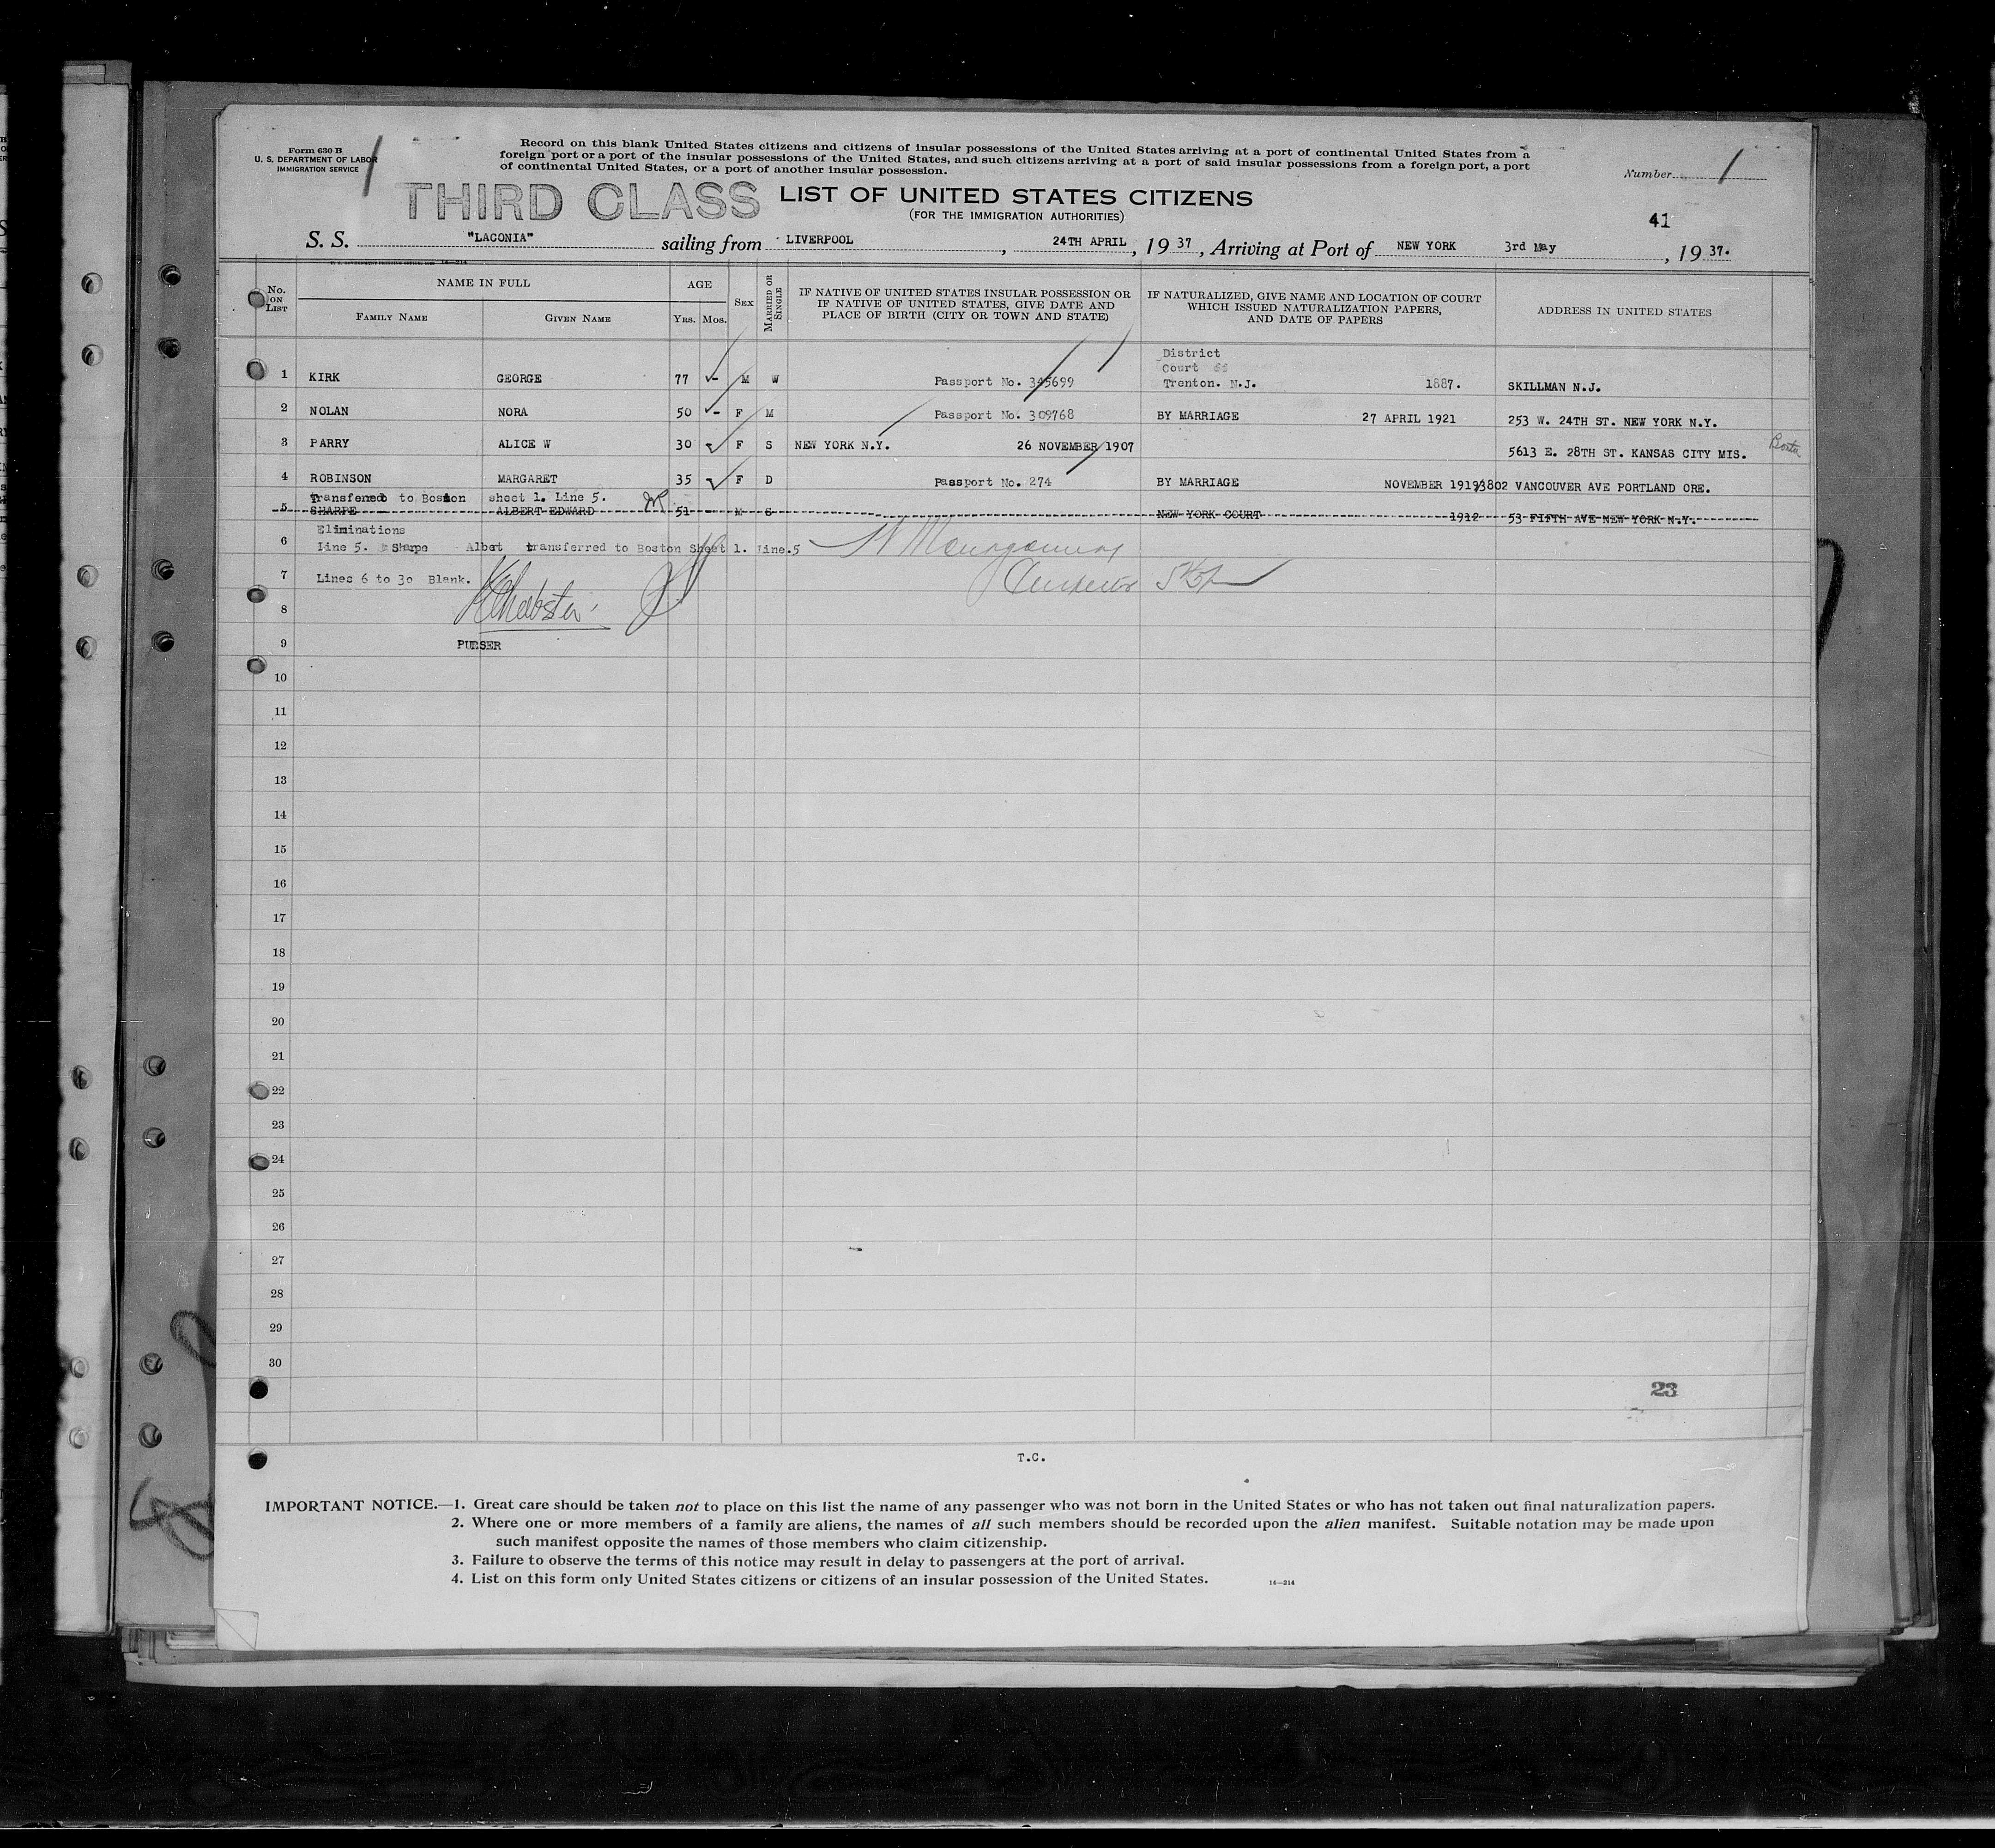 Form 630 B
U. S. DEPARTMENT OF LABOR
IMMIGRATION SERVICE
Record on this blank United States citizens and citizens of insular possessions of the United States arriving at a port of continental United States from a
foreign port or a port of the insular possessions of the United States, and such citizens arriving at a port of said insular possessions from a foreign port, a port
of continental United States, or a port of another insular possession.
Number 1
THIRD CLASS LIST OF UNITED STATES CITIZENS
(FOR THE IMMIGRATION AUTHORITIES)
41
S. S. "LACONIA" sailing from LIVERPOOL, 24TH APRIL, 19 37, Arriving at Port of NEW YORK 3rd May, 19 37.
No. ON LIST
NAME IN FULL
FAMILY NAME
GIVEN NAME
AGE
YRS. MOS.
SEX
MARRIED OR SINGLE
IF NATIVE OF UNITED STATES INSULAR POSSESSION OR
IF NATIVE OF UNITED STATES, GIVE DATE AND
PLACE OF BIRTH (CITY OR TOWN AND STATE)
IF NATURALIZED, GIVE NAME AND LOCATION OF COURT
WHICH ISSUED NATURALIZATION PAPERS,
AND DATE OF PAPERS
ADDRESS IN UNITED STATES
District
Court
1 KIRK GEORGE 77 - M W Passport No. 345699 Trenton. N.J. 1887. SKILLMAN N.J.
2 NOLAN NORA 50 - F M Passport No. 309768 BY MARRIAGE 27 APRIL 1921 253 W. 24TH ST. NEW YORK N.Y.
3 PARRY ALICE W 30 F S NEW YORK N.Y. 26 NOVEMBER 1907 5613 E. 28TH ST. KANSAS CITY MIS. Boston
4 ROBINSON MARGARET 35 F D Passport No. 274 BY MARRIAGE NOVEMBER 1919 3802 VANCOUVER AVE PORTLAND ORE.
Transferred to Boston sheet 1. Line 5.
5 SHARPE ALBERT EDWARD 51 - M S NEW YORK COURT 1912 53 FIFTH AVE NEW YORK N.Y.
Eliminations
6 Line 5. Sharpe Albert transferred to Boston Sheet 1. Line.5
7 Lines 6 to 30 Blank.
8
9 PURSER
10
11
12
13
14
15
16
17
18
19
20
21
22
23
24
25
26
27
28
29
30
23
T.C.
IMPORTANT NOTICE.—1. Great care should be taken not to place on this list the name of any passenger who was not born in the United States or who has not taken out final naturalization papers.
2. Where one or more members of a family are aliens, the names of all such members should be recorded upon the alien manifest. Suitable notation may be made upon
such manifest opposite the names of those members who claim citizenship.
3. Failure to observe the terms of this notice may result in delay to passengers at the port of arrival.
4. List on this form only United States citizens or citizens of an insular possession of the United States. 14—214